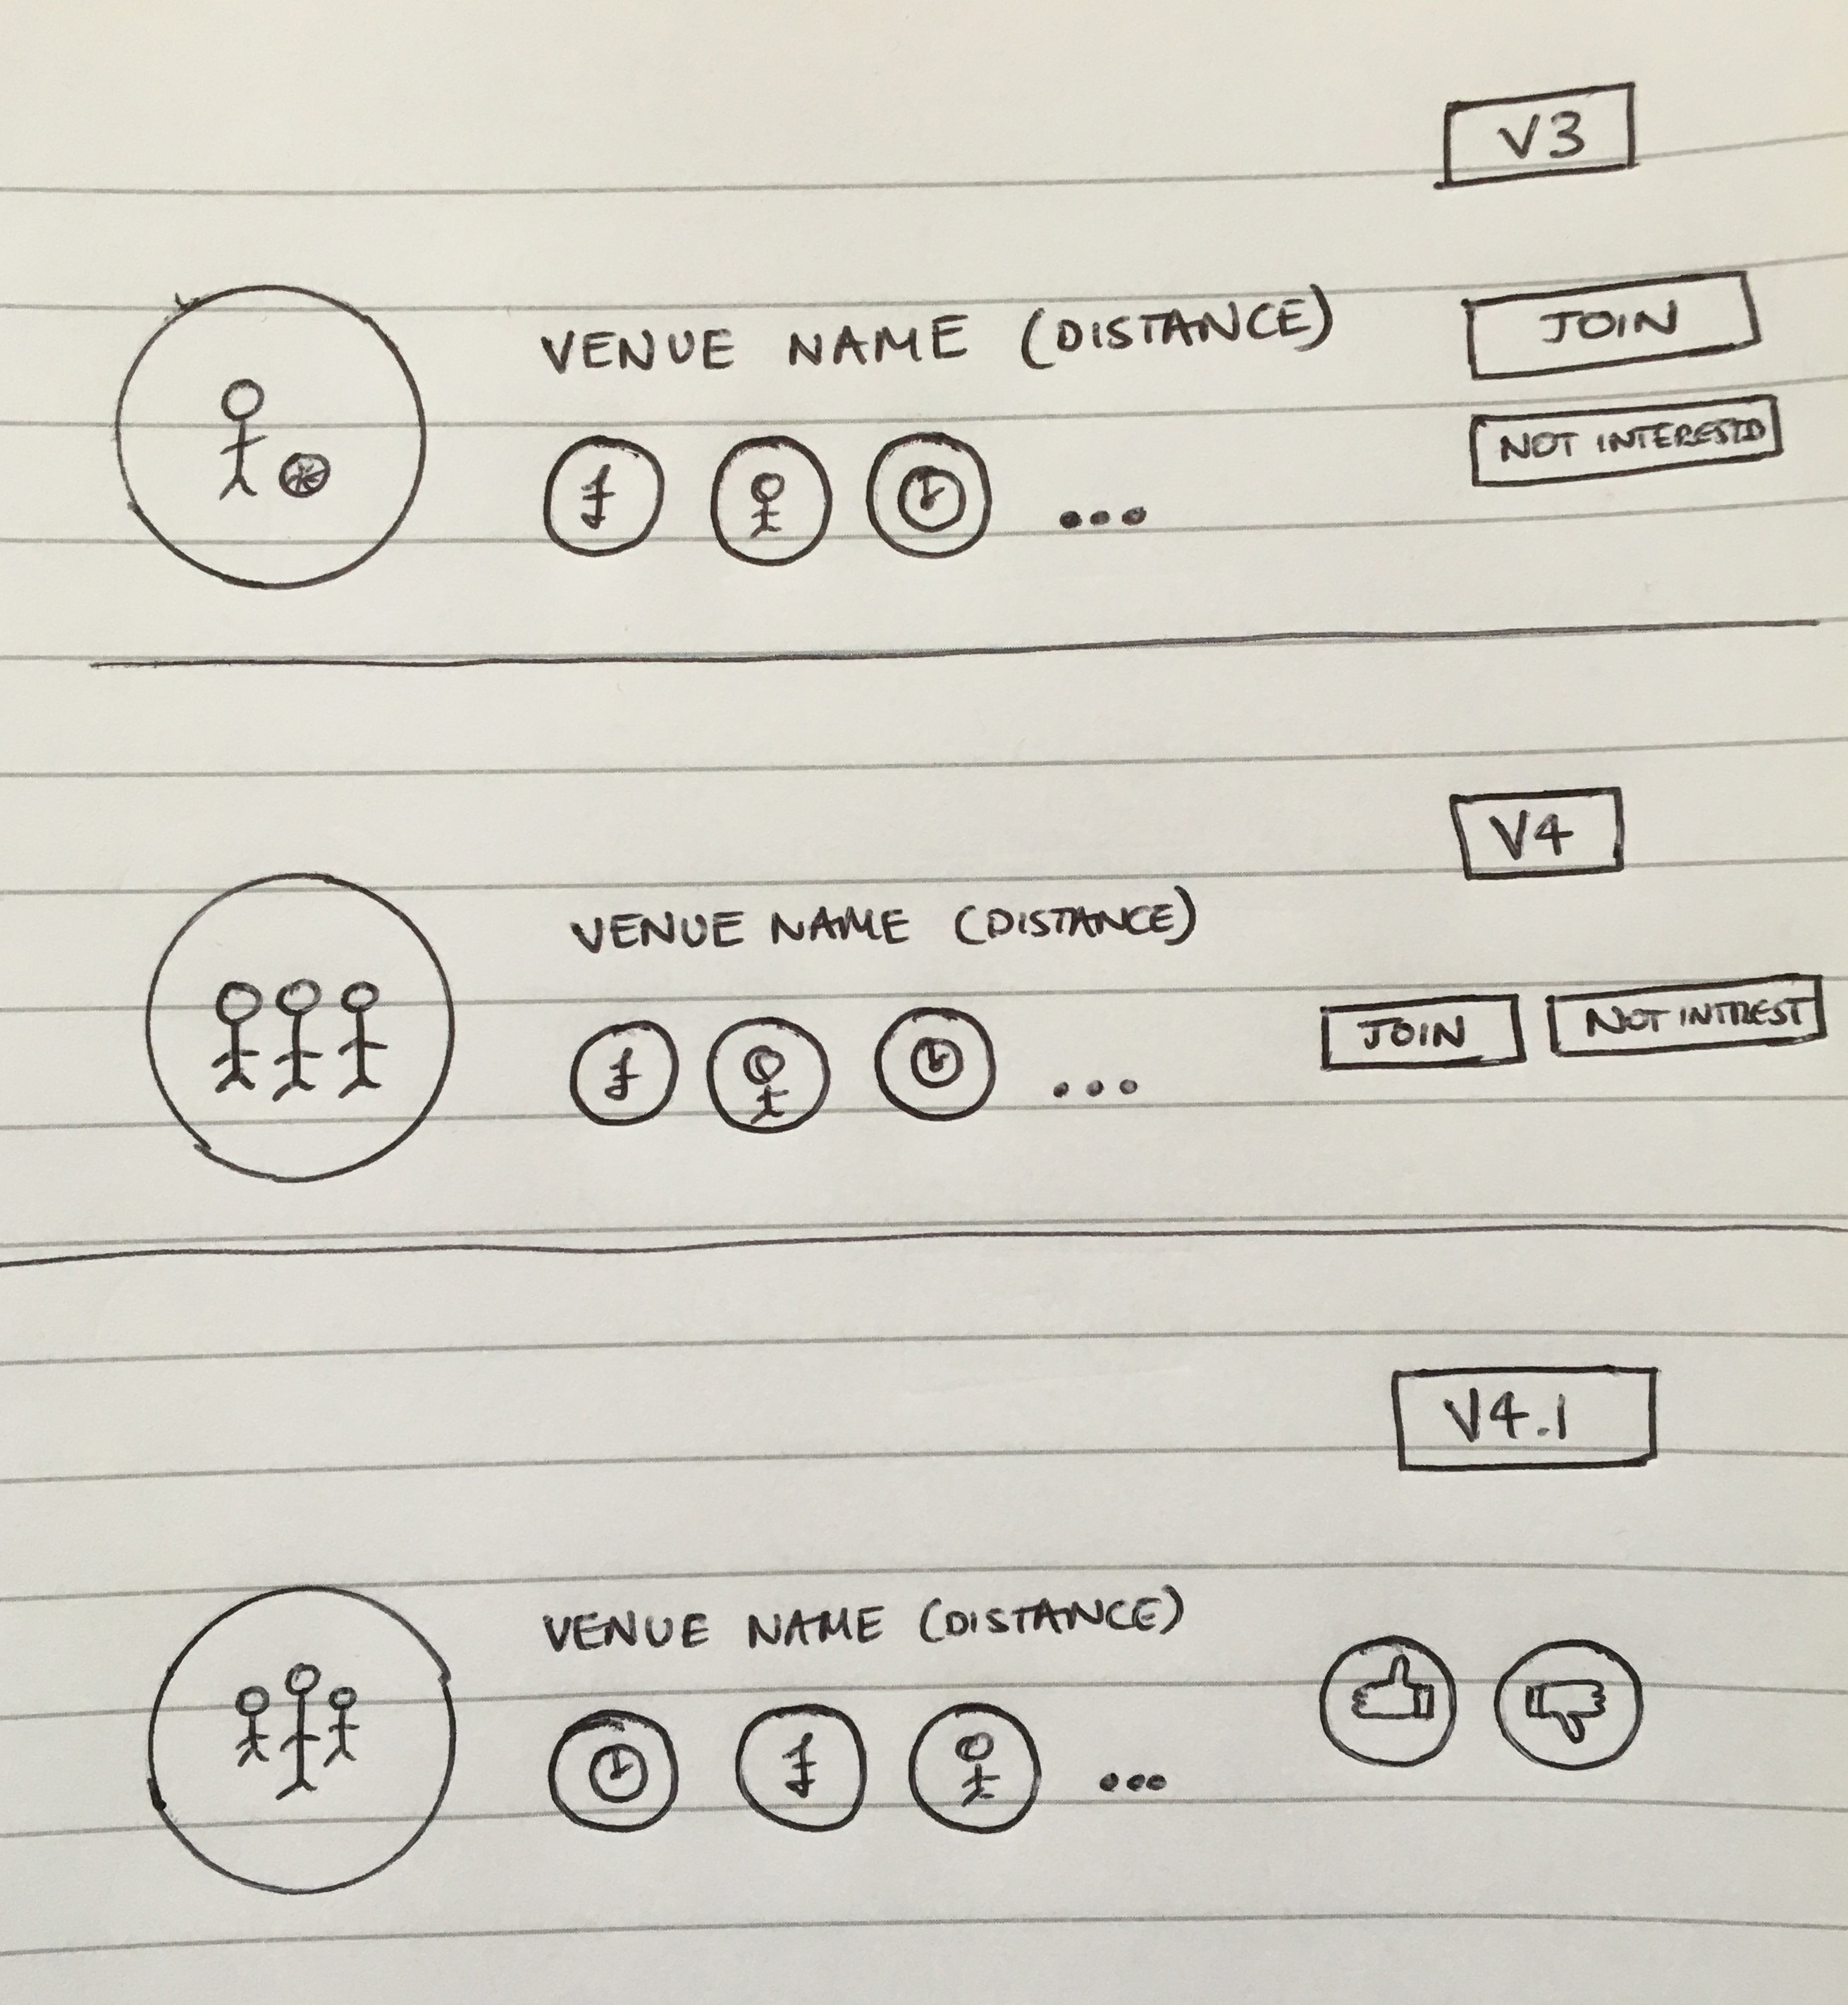 V3
VENUE NAME (DISTANCE)
JOIN
NOT INTERESTD
...
V4
VENUE NAME (DISTANCE)
JOIN
NOT INTREST
...
V4.1
VENUE NAME (DISTANCE)
...